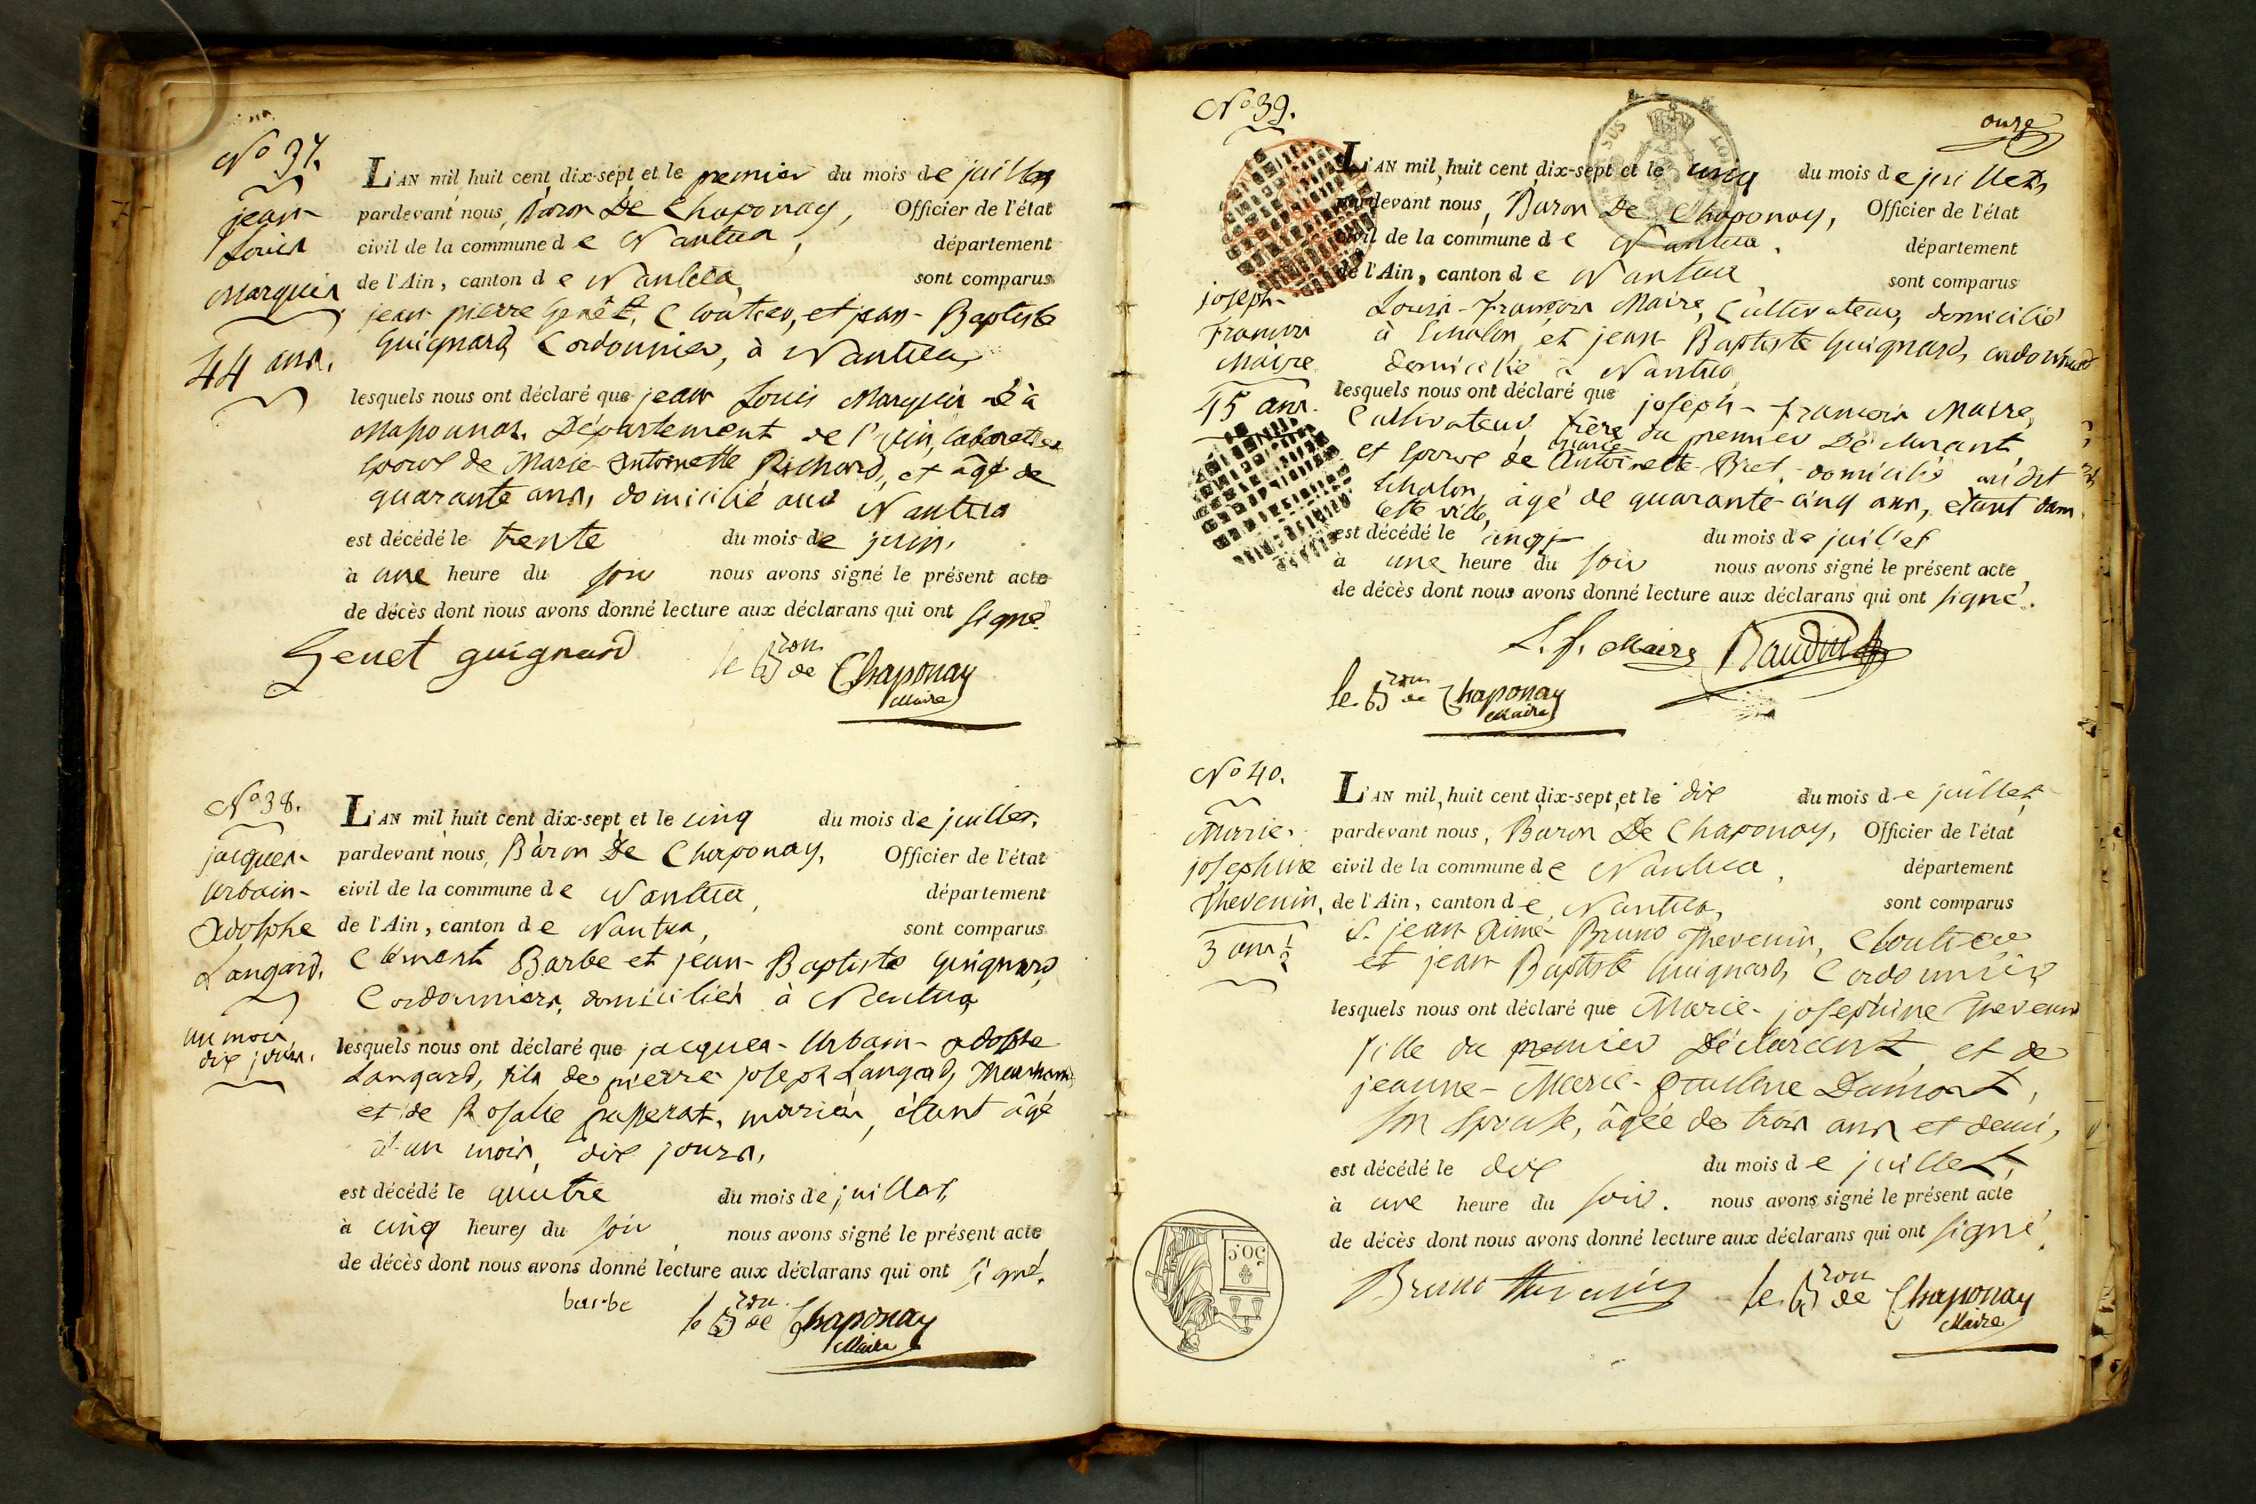 No 37.
jean
Louis
Marquis
44 ans.
L'AN mil huit cent dix-sept et le premier du mois de juillet
pardevant nous, Baron De Chaponay, Officier de l'état
civil de la commune de Nantua, département
de l'Ain, canton de Nantua, sont comparus
jean pierre Genêt, Cloutier, et jean-Baptiste
Guignard Cordonnier, à Nantua
lesquels nous ont déclaré que jean Louis Marquis né à
Département de l'Ain,
Epoux de Marie Antoinette Richard, et âgé de
quarante ans, domicilié Nantua
est décédé le trente du mois de juin,
à une heure du soir nous avons signé le présent acte
de décès dont nous avons donné lecture aux déclarans qui ont signé.
Genet guignard le Bron de Chaponay
Maire
No 38.
jacques-
Urbain-
Adolphe
Langard.
un mois
dix jours.
L'AN mil huit cent dix-sept et le cinq du mois de juillet.
pardevant nous, Baron De Chaponay, Officier de l'état
civil de la commune de Nantua, département
de l'Ain, canton de Nantua, sont comparus
Clément Barbe et jean-Baptiste Guignard,
Cordonniers, domiciliés à Nantua
lesquels nous ont déclaré que jacques-Urbain-adolphe
Langard, fils de pierre joseph Langard, Marchand
et de Rosalie passerat, mariés, étant âgé
d'un mois, dix jours,
est décédé le quatre du mois de juillet,
à cinq heures du soir, nous avons signé le présent acte
de décès dont nous avons donné lecture aux déclarans qui ont signé.
barbe le Bron de Chaponay
Maire
No 39.
onze
joseph-
François
Maire
45 ans.
L'AN mil huit cent dix-sept et le cinq du mois de juillet,
pardevant nous, Baron De Chaponay, Officier de l'état
civil de la commune de Nantua. département
de l'Ain, canton de Nantua sont comparus
Louis-François Maire, Cultivateur, domicilié
à Echalon, et jean Baptiste Guignard, cordonnier
domicilié à Nantua
lesquels nous ont déclaré que joseph-François Maire,
Cultivateur frère du premier Déclarant,
et Epoux de marie Antoinette Bret, domicilié au dit
Echalon, âgé de quarante-cinq ans, étant dans
cette ville,
est décédé le cinq du mois de juillet
à une heure du soir nous avons signé le présent acte
de décès dont nous avons donné lecture aux déclarans qui ont signé.
L. f. Maire Baudin
le Bron de Chaponay
Maire
No 40.
Marie-
josephine
Thevenin,
3 ans ½
L'AN mil huit cent dix-sept et le dix du mois de juillet,
pardevant nous, Baron De Chaponay, Officier de l'état
civil de la commune de Nantua, département
de l'Ain, canton de Nantua, sont comparus
S. jean Aimé Bruno Thevenin, Cloutier
et jean Baptiste Guignard, Cordonnier
lesquels nous ont déclaré que Marie-josephine Thevenin
fille du premier Déclarant, et de
jeanne-Marie-pauline Dumont,
son Epouse, âgée de trois ans et demi,
est décédé le dix du mois de juillet,
à une heure du soir. nous avons signé le présent acte
de décès dont nous avons donné lecture aux déclarans qui ont signé.
50 C
Bruno thevenin le Bron de Chaponay
Maire